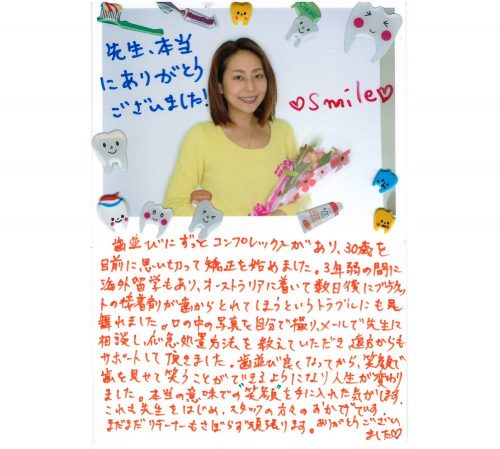 先生、本当
にありがとう
ございました!
♡Smile♡
歯並びにずっとコンプレックスがあり、30歳を
目前に思い切って矯正を始めました。3年弱の間に
海外留学もあり、オーストラリアに着いて数日後にブラケッ
トの接着剤が歯からとれてしまうというトラブルにも見
舞れました。口の中の写真を自分で撮り、メールで先生に
相談し、応急処置方法を教えていただき遠方からも
サポートして頂きました。歯並び良くなってから、笑顔で
歯を見せて笑うことができるようになり人生が変わり
ました。本当の意味での"笑顔"を手に入れた気がします。
これも先生をはじめ、スタッフの方々のおかげです。
まだまだリテーナーもさぼらず頑張ります。ありがとうござい
ました♡